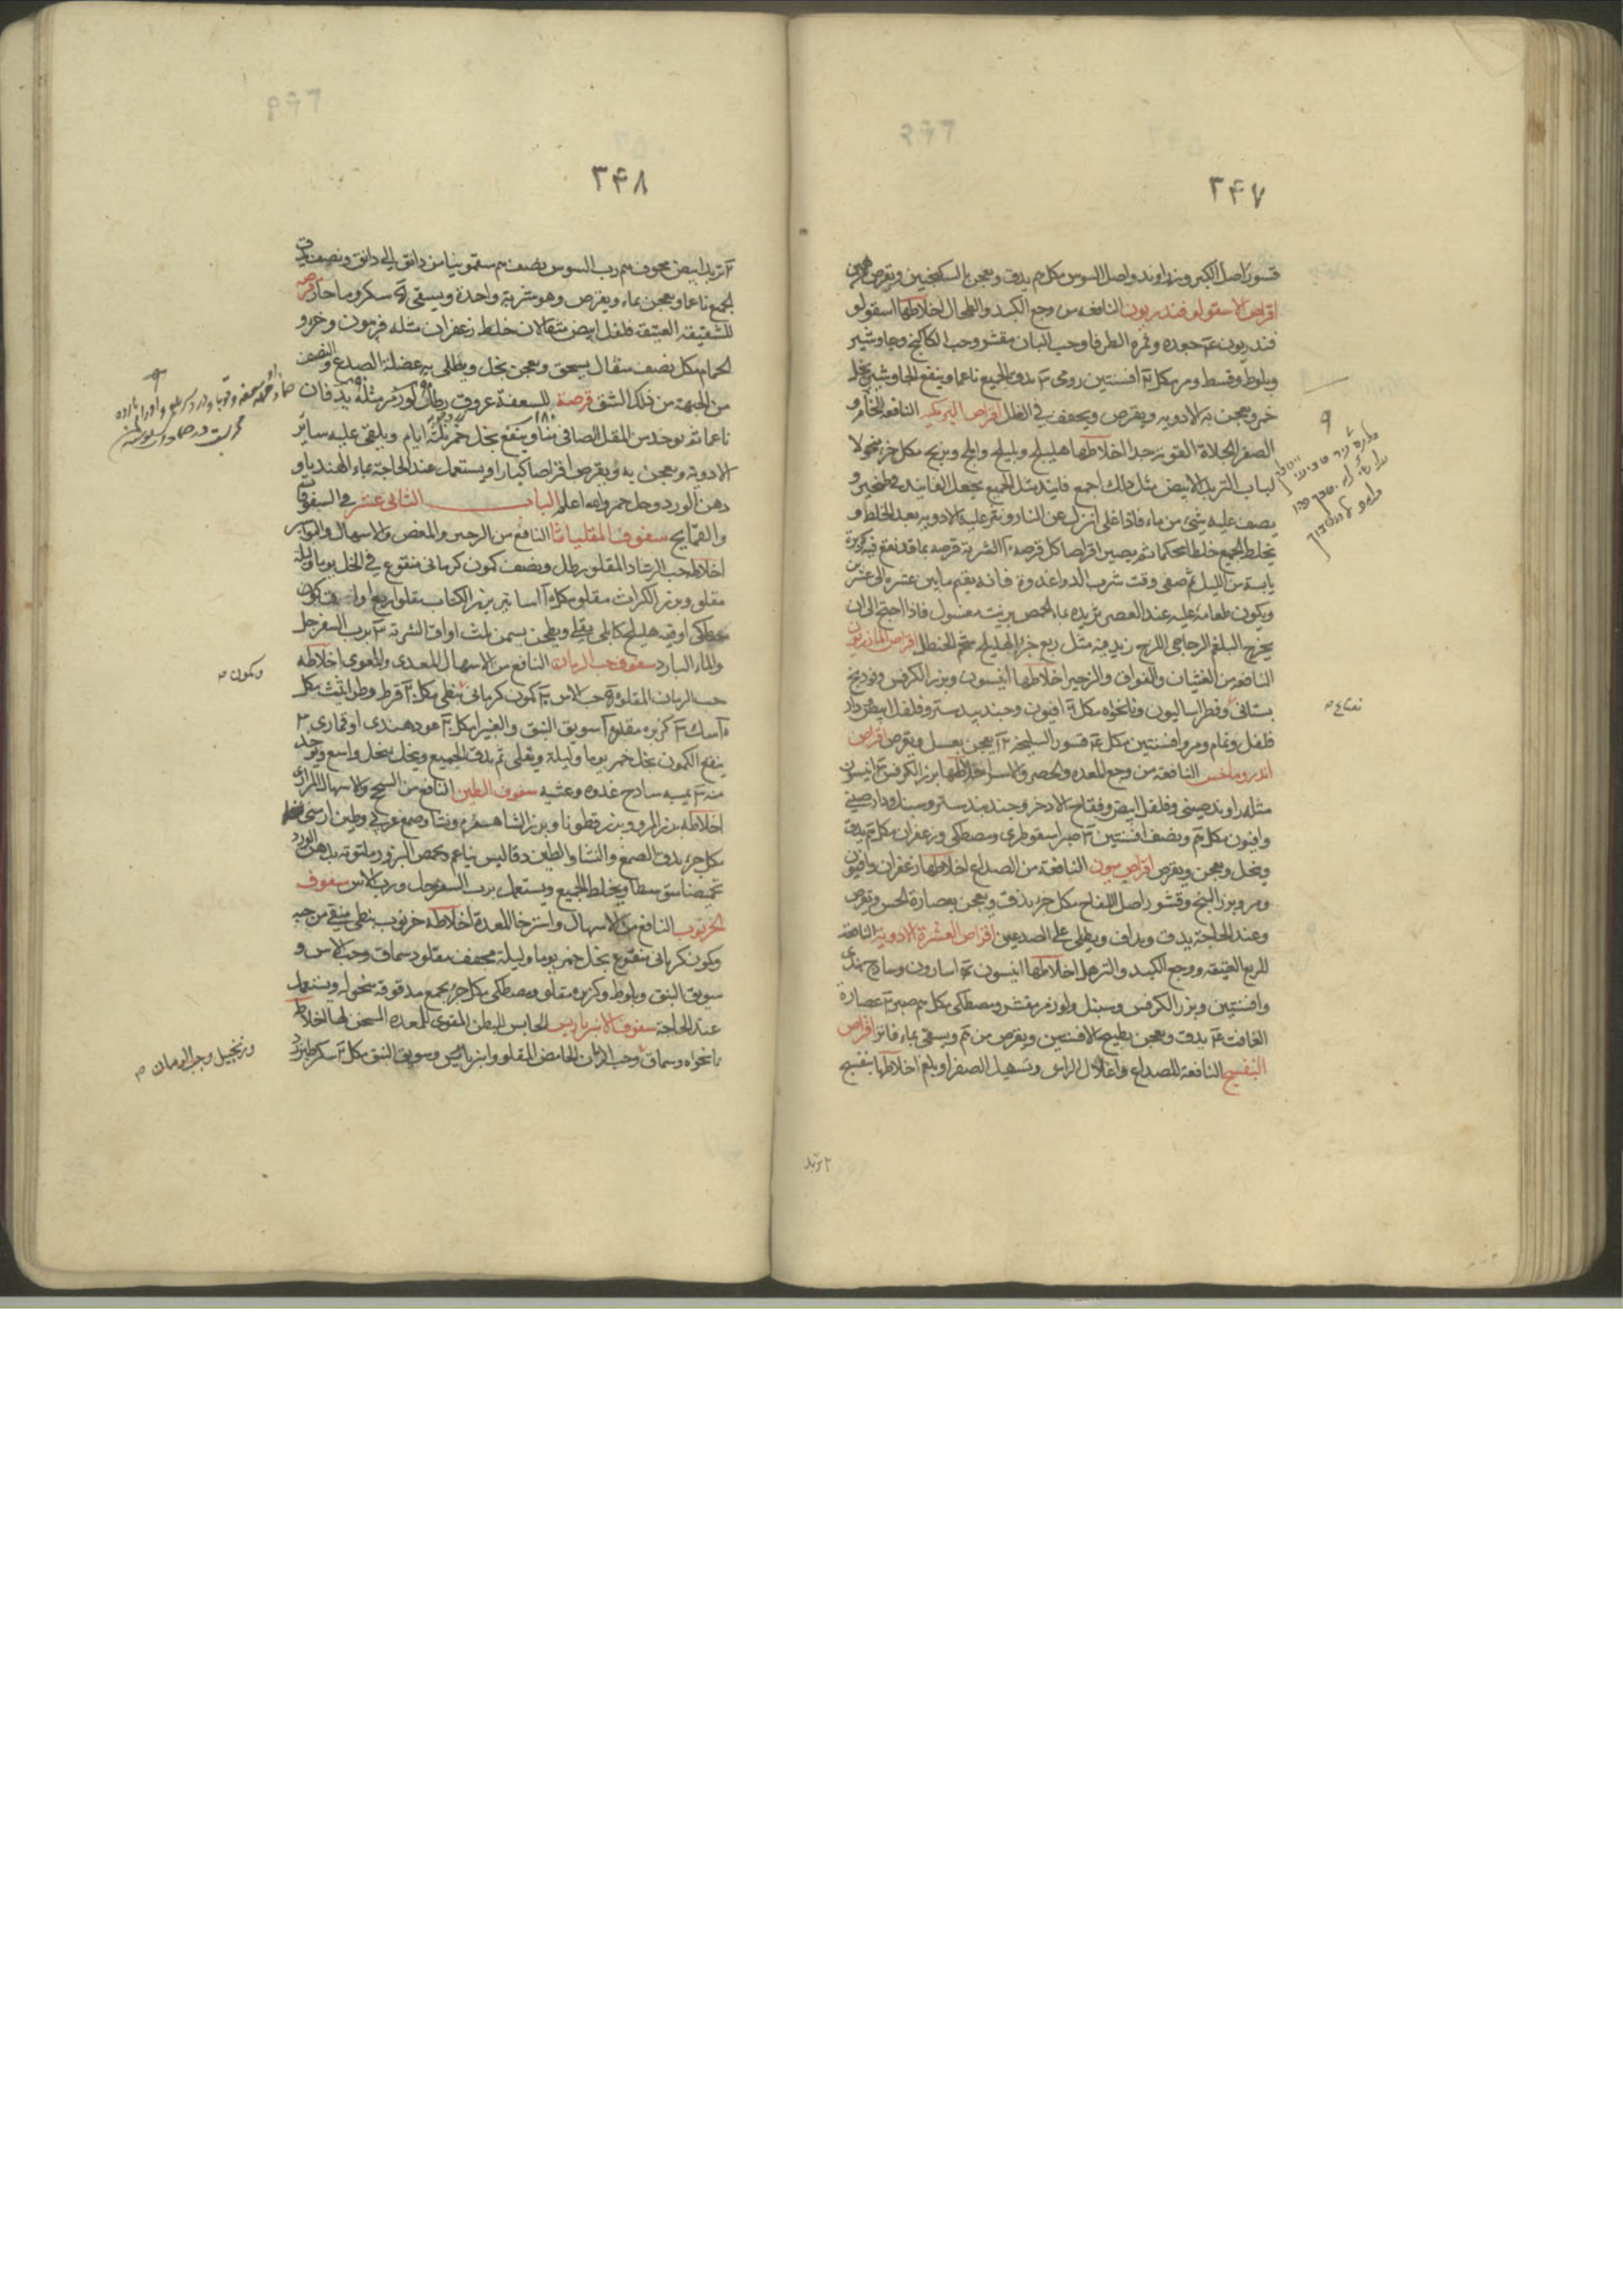 ٣۴٧
قشور اصل الكبر وزراوند واصل السوس مكل يدق ويعجن بالسكنجبين ويقرص
اقراص الاسقولوفندريون النافعه من وجع الكبد والطحال اخلاطها اسقولو
فندريون جعده وثمرة الطرفا وحب البان مقشر وحب الكاكنج وجاوشير
وبلوط وقسط ومر مكل افسنتين رومى يدق الجميع ناعما وينقع الجاوشير بخل
خمر ويعجن به الادويه ويقرص ويجفف في الظل اقراص البرمكيه النافعه
الصفرا اخلاطها هليلج وبليلج واملج وبرنج مكل جزء
لباب التربد الابيض مثل ذلك اجمع فانيد مثل الجميع يجعل الفانيد في طنجير و
يصب عليه شئ من ماء فاذا غلى انزل عن النار ونثر عليه الادويه بعد الخلط و
يخلط الجميع خلطا محكما ثم يصير اقراصا كل قرصه الشربة قرصه بما قد نقع فيه كزبرة
يابسة من الليل ثم صفى وقت شرب الدوا غدوة فانه يقيم مابين عشره الى عشرين
ويكون طعامه عليه عند العصر ثريده بماء الحمص بزيت مغسول فاذا احتج الى ان
يخرج البلغم الزجاجى اللزج زيد فيه مثل ربع جزء الهليلج شحم الحنظل اقراص المازريون
النافعه من الغثيان والفواق والزحير اخلاطها انيسون وبزر الكرفس وفودنج
بستانى وفطراساليون ونانخواه مكل افيون وجندبيدستر وفلفل ابيض ودار
فلفل ونمام ومر وافسنتين مكل قشور السليخه يعجن بعسل ويقرص اقراص
اندروماخس النافعه من وجع المعده والحصر والاسر اخلاطها بزر الكرفس انيسون
مثله راوند صينى وفلفل ابيض وفقاح الاذخر وجندبيدستر وسنبل ودارصينى
وافيون مكل ونصف افسنتين صبر اسقوطرى ومصطكى وزعفران مكل يدق
وينخل ويعجن ويقرص اقراص النافعة من الصداع اخلاطها زعفران وافيون
ومر وبزر البنج وقشور اصل اللفاح مكل جزء يدق ويعجن بعصارة الخس ويقرص
وعند الحاجة يدق ويداف ويطلى على الصدغين اقراص العشرة الادوية النافعة
للربع العتيقه ووجع الكبد والترهل اخلاطها انيسون اسارون وساذج هندى
وافسنتين وبزر الكرفس وسنبل ولوز مر مقشر ومصطكى مكل صبر عصارة
الغافت يدق ويعجن بطبيخ الافسنتين ويقرص من ويسقى بماء فاتر اقراص
البنفسج النافعة للصداع واثقال الراس وتسهيل الصفرا والبلغم اخلاطها بنفسج
نعناع
تربد
٣۴٨
تربد ابيض مجوف رب السوس نصف سقمونيا من دانق الى دانق ونصف يدق
الجميع ناعما ويعجن بماء ويقرص وهو شربة واحدة ويسقى سكر وماء حار قرصه
للشقيقه العتيقه فلفل ابيض مثقالان خلط زعفران مثله فربيون وخرو
الحمام مكل نصف مثقال يسحق ويعجن بخل ويطلى به عضلة الصدغ والنصف
من الجبهة من ذلك الشق قرصة للسعفة عروق رطل لوز مر مثله يدقان
ناعما ثم يوخذ من المقل الصافى وينقع بخل خمر ثلثة ايام ويلقى عليه ساير
الادوية ويعجن به ويقرص اقراصا كبارا ويستعمل عند الحاجة بماء الهندبا و
دهن الورد وخل خمر والله اعلم الباب الثانى عشر فى السفوفات
والقمايح سفوف المقلياثا النافع من الزحير والمغص والاسهال والبواسير
اخلاطه حب الرشاد المقلو رطل ونصف كمون كرمانى منقوع فى الخل يوما وليلة
مقلو وبزر الكراث مقلو مكل اساتير بزر الكتان مقلو اربع اواق
مصطكى اوقيه هليلج كابلى يقلى ويطحن بسمن ثلث اواق الشربة برب السفرجل
والماء البارد سفوف حب الرمان النافع من الاسهال المعدى والمعوى اخلاطه
حب الرمان المقلو حب الاس كمون كرمانى نبطى مكل قرظ وطراثيث مكل
سك كزبره مقلوه سويق النبق والغبيرا مكل عود هندى او قمارى
ينقع الكمون بخل خمر يوما وليلة ويقلى ثم يدق الجميع وينخل بمنخل واسع ويوخذ
منه بميبه ساذج غدوه وعشيه سفوف الطين النافع من السحج والاسهال المرارى
اخلاطه بزر المرو وبزر قطونا وبزر الشاهسفرم ونشا وصمغ عربى وطين ارمنى
مكل جزء يدق الصمغ والنشا والطين دقا ليس بناعم وتحمص البزور ملتوته بدهن الورد
تحميصا متوسطا ويخلط الجميع ويستعمل برب السفرجل ورب الاس سفوف
الخرنوب النافع من الاسهال واسترخا المعدة اخلاطه خرنوب نبطى منقى من حبه
وكمون كرمانى منقوع بخل خمر يوما وليلة مجفف مقلو وسماق وحب الاس و
سويق النبق وبلوط وكزبره مقلو ومصطكى مكل جزء يجمع مدقوقه منخوله ويستعمل
عند الحاجة سفوف الانبرباريس الحابس البطن المقوى للمعده المسخن لها اخلاطه
نانخواه وسماق وحب الرمان الحامض المقلو وانبرباريس وسويق النبق مكل سكر طبرزد
وكمون
وزنجبيل وحب الرمان